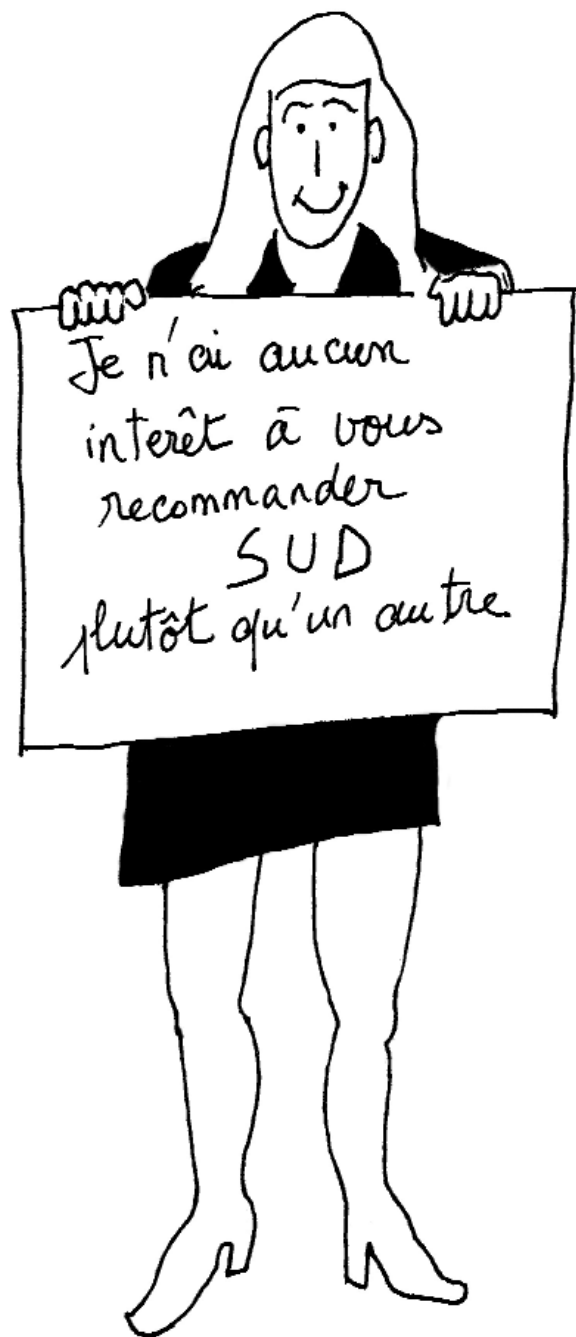 Je n'ai aucun
interêt à vous
recommander
SUD
plutôt qu'un autre